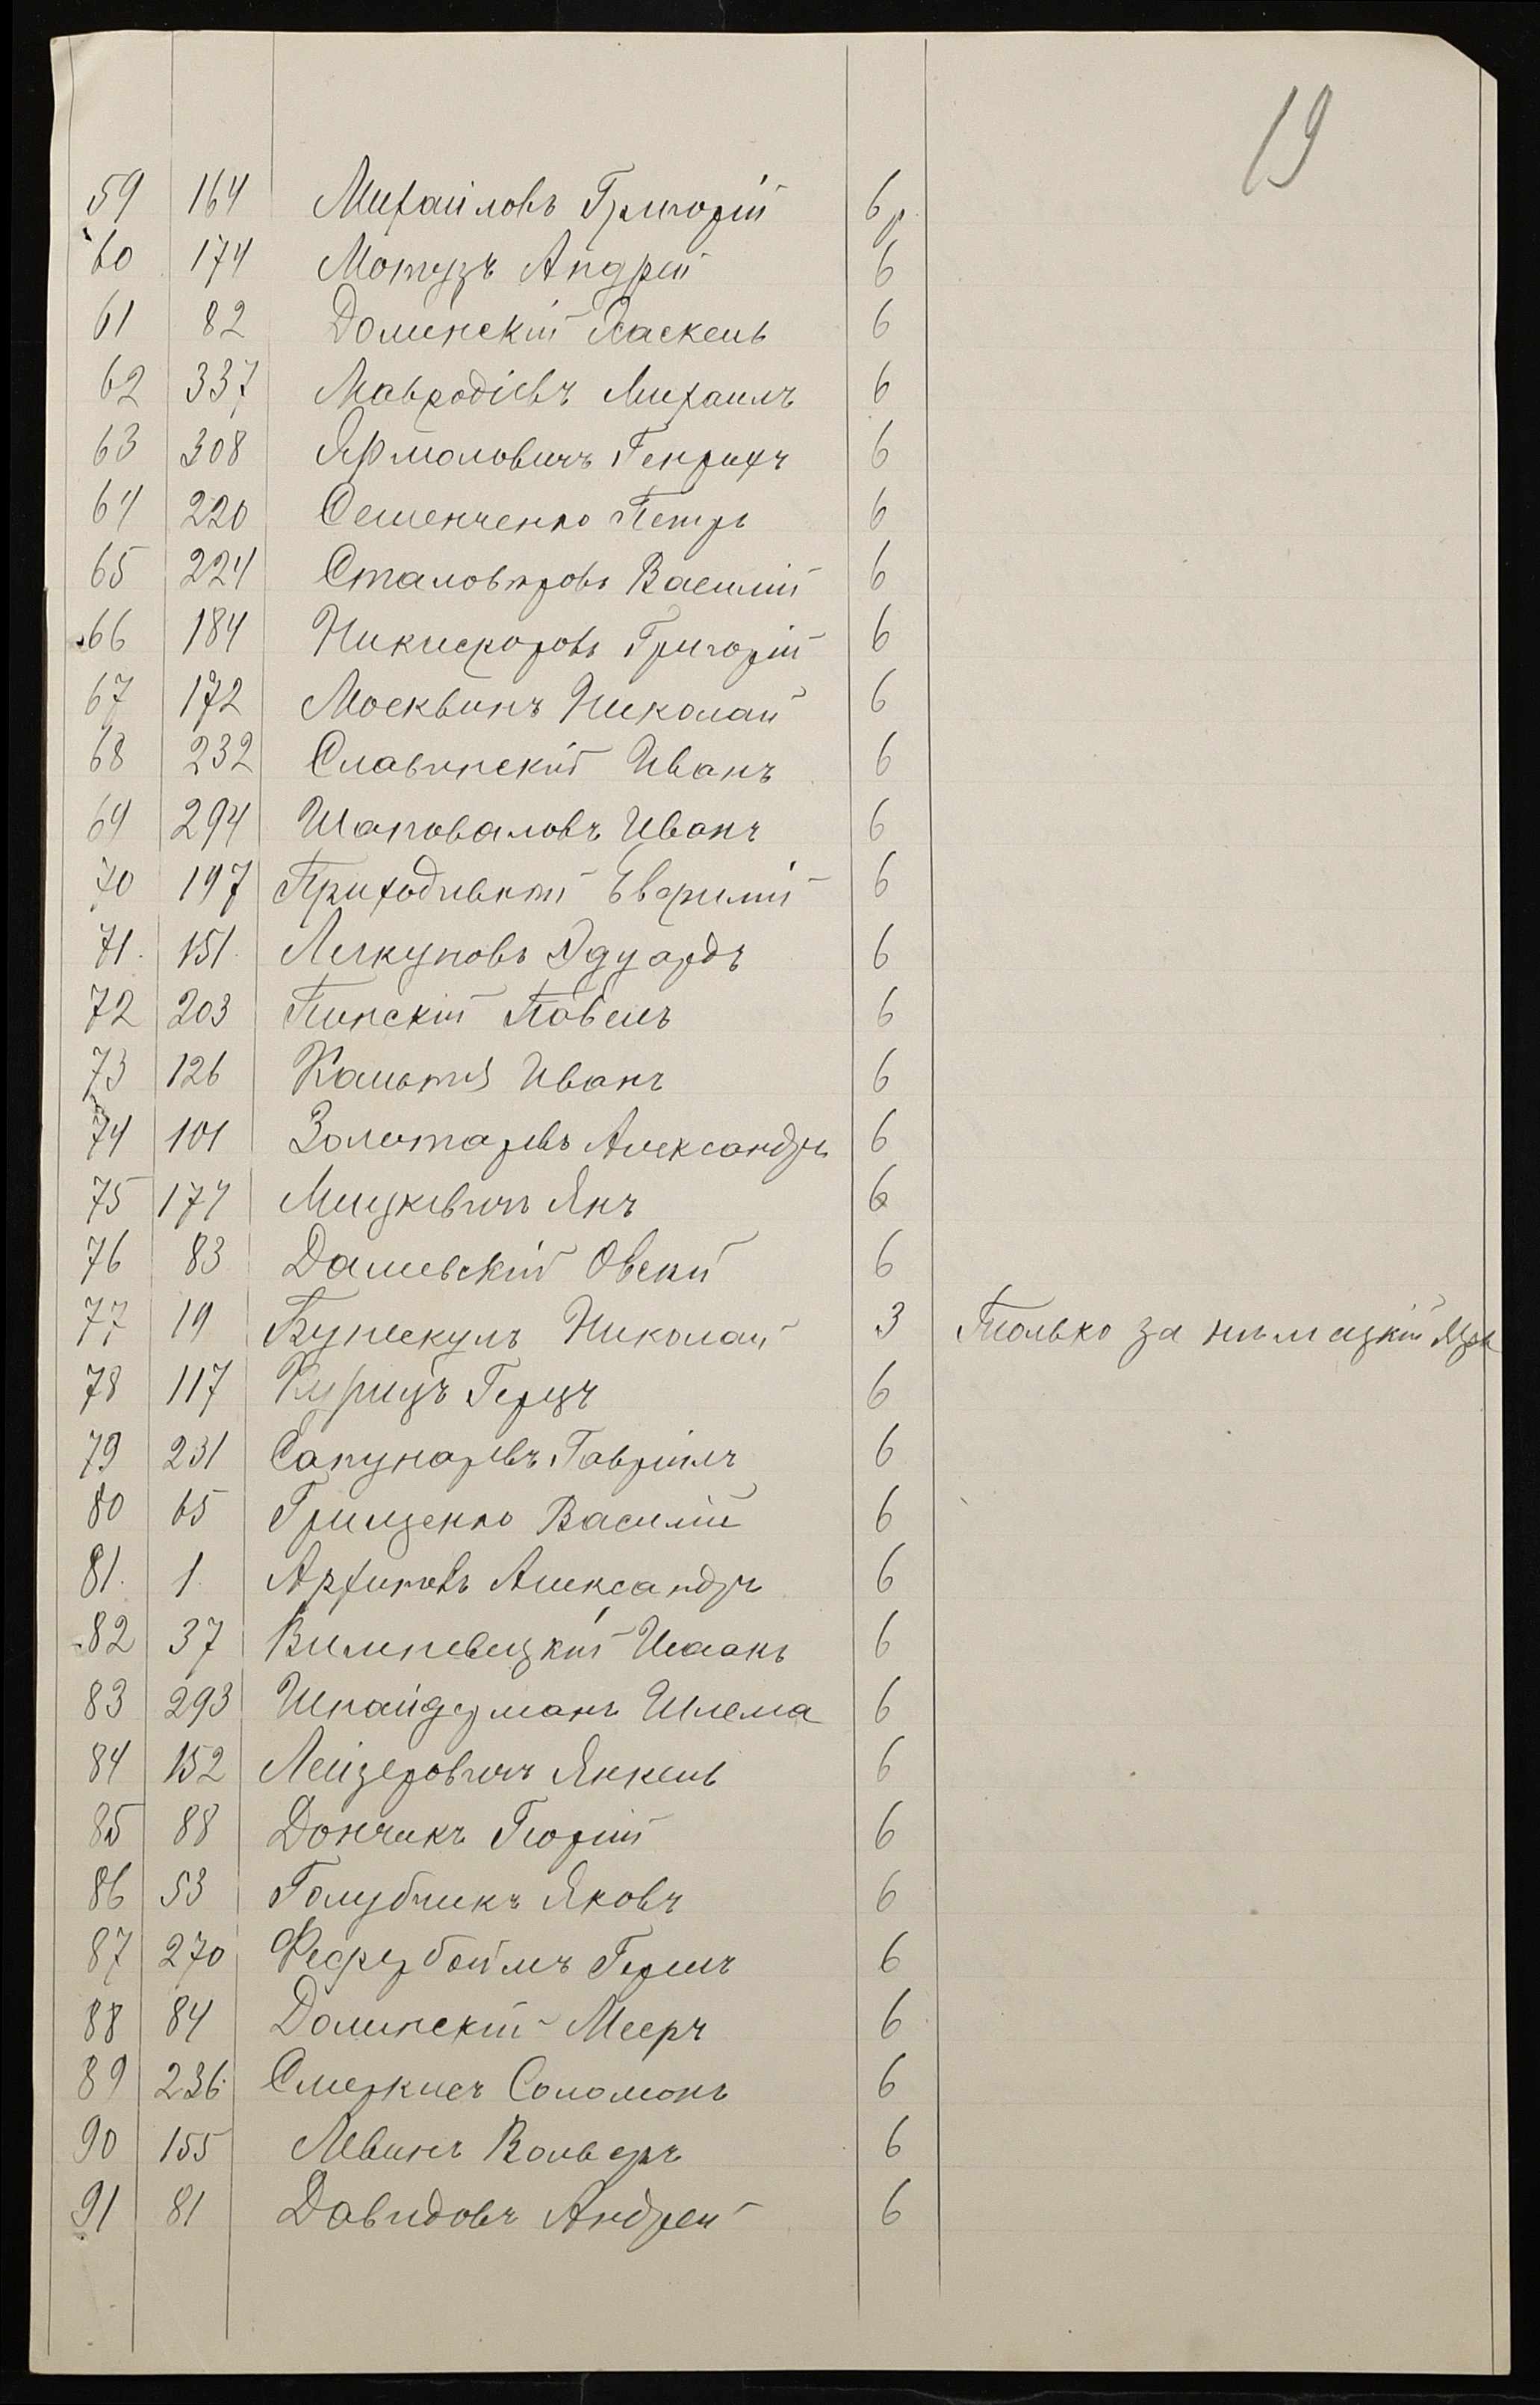 19
59 164 Михаиловъ Григорій 6 р.
60 174 Мотузъ Андрей 6
61 82 Долинскій Хаскель 6
62 337 Мавродіевъ Михаилъ 6
63 308 Ярмоловичъ Генрихъ 6
64 220 Семенченко Петръ 6
65 224 Василій 6
66 184 Никифоровъ Григорій 6
67 172 Москвинъ Николай 6
68 232 Славинскій Иванъ 6
69 294 Шаповаловъ Иванъ 6
70 197 Евфимій 6
71. 151. Эдуардъ 6
72 203 Пинскій Павелъ 6
73 126 Иванъ 6
74 101 Золотаревъ Александръ 6
75 177 Мицкевичъ Янъ 6
76 83 Дашевскій Овсей 6
77 19 Бунескулъ Николай 3 Только за нѣмецкій яз.
78 117 Курицъ Герцъ 6
79 231 Сапунаревъ Гавріилъ 6
80 65 Грищенко Василій 6
81. 1. Архиповъ Александръ 6
82 37 Исаакъ 6
83 293 Шнайдерманъ Шлема 6
84 152 Лейзеровичъ Янкель 6
85 88 Дончикъ Георгій 6
86 53 Голубчикъ Яковъ 6
87 270 Гершъ 6
88 84 Долинскій Мееръ 6
89 236 Соломонъ 6
90 155 Левинъ Вольфъ 6
91 81 Давидовъ Андрей 6